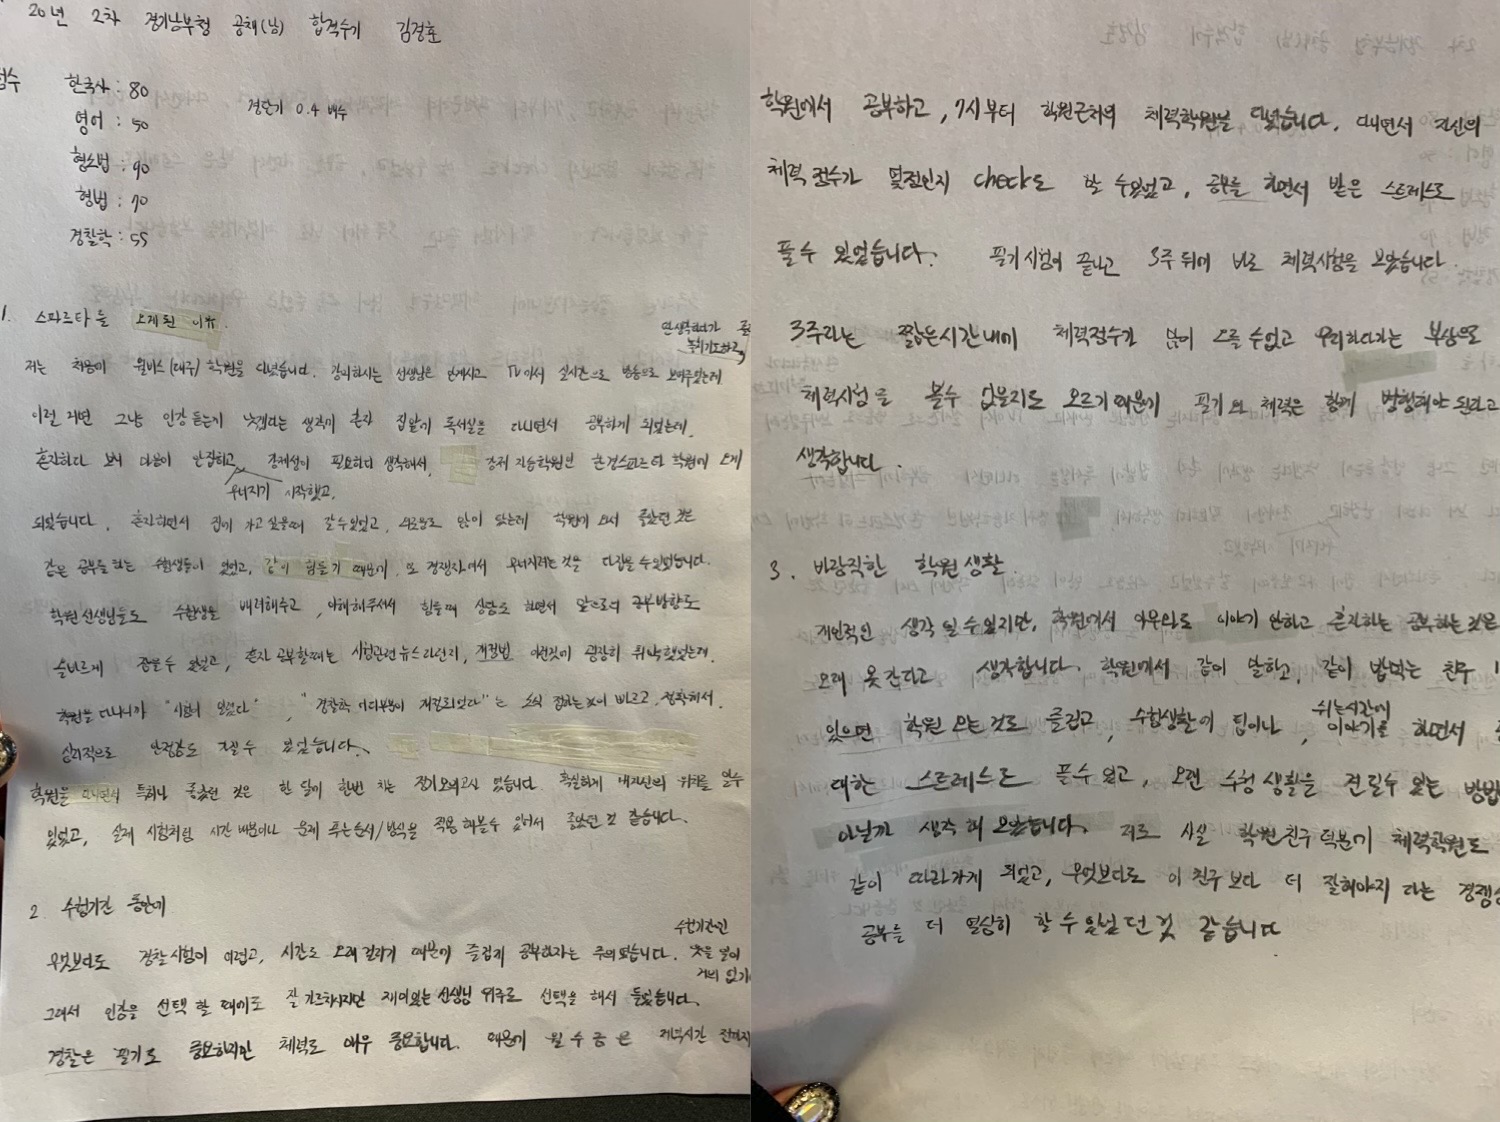 20년 2차 경기남부청 공채(남) 합격수기 김정훈
점수 한국사 : 80
영어 : 50
형소법 : 90
형법 : 70
경찰학 : 55
경단기 0.4 배수
1. 스파르타를 오게된 이유.
저는 처음에 윌비스(대구)학원을 다녔습니다. 강의하시는 선생님은 안계시고 TV에서 실시간으로 방송으로 보여주었는데
이럴 거면 그냥 인강 듣는게 낫겠다는 생각에 혼자 집앞에 독서실을 다니면서 공부하게 되었는데,
혼자하다 보니 마음이 안잡히고 무너지기 시작했고, 강제성이 필요하다 생각해서, 강제 자습학원인 한경스파르타 학원에 오게
되었습니다. 혼자하면서 집에 가고 싶을때 갈수있었고, 외로움도 많이 탔는데 학원에 와서 좋았던 것은
같은 공부를 하는 수험생들이 있었고, 같이 힘들기 때문에, 또 경쟁자여서 무너지려는 것을 다잡을 수있었습니다.
학원선생님들도 수험생을 배려해주고, 이해해주셔서 힘들때 상담도 하면서 앞으로의 공부방향도
올바르게 잡을수 있었고, 혼자 공부할때는 시험관련 뉴스라던지, 개정법 이런것에 굉장히 취약했었는데,
학원을 다니니까 "시험이 있었다", "경찰학 어디부분이 개정되었다"는 소식 접하는것이 빠르고, 정확해서,
심리적으로 안정감도 가질 수 있었습니다.
학원을 다니면서 특히나 좋았던 것은 한 달에 한번 치는 정기모의고사 였습니다. 확실하게 내자신의 위치를 알수
있었고, 실제 시험처럼 시간 배분이나 문제 푸는순서/방식을 적용 해볼수 있어서 좋았던 것 같습니다.
2 수험기간 동안에
무엇보다도 경찰시험이 어렵고, 시간도 오래 걸리기 때문에 즐겁게 공부하자는 주의였습니다.
그래서 인강을 선택 할 때에도 잘 가르치시지만 재미있는 선생님 위주로 선택을 해서 들었습니다.
경찰은 필기도 중요하지만 체력도 매우 중요합니다. 때문에 월 수 금은
학원에서 공부하고, 7시부터 학원근처의 체력학원을 다녔습니다. 다니면서 자신의
체력점수가 몇점인지 check도 할 수있었고, 공부를 하면서 받은 스트레스도
풀수 있었습니다. 필기시험이 끝나고 3주 뒤에 바로 체력시험을 보았습니다.
3주라는 짧은시간내에 체력점수가 많이 오를수없고 무리하다라는 부상으로
체력시험을 볼수 없을지도 모르기때문에 필기와 체력은 함께 병행해야 된다고
생각합니다.
3. 바람직한 학원생활.
개인적인 생각 일수있지만, 학원에서 아무와도 이야기 안하고 혼자하는 공부하는것은
오래 못간다고 생각합니다. 학원에서 같이 말하고, 같이 밥먹는 친구 1
있으면 학원 오는것도 즐겁고, 수험생활에 팁이나, 쉬는시간에 이야기를 하면서
대한 스트레스도 풀수 있고, 오랜 수험생활을 견딜수 있는 방법
아닐까 생각해 보았습니다. 저도 사실 학원친구덕분에 체력학원도
같이 따라가게 되었고, 무엇보다도 이 친구보다 더 잘해야지 라는 경쟁
공부를 더 열심히 할 수있었던것 같습니다.